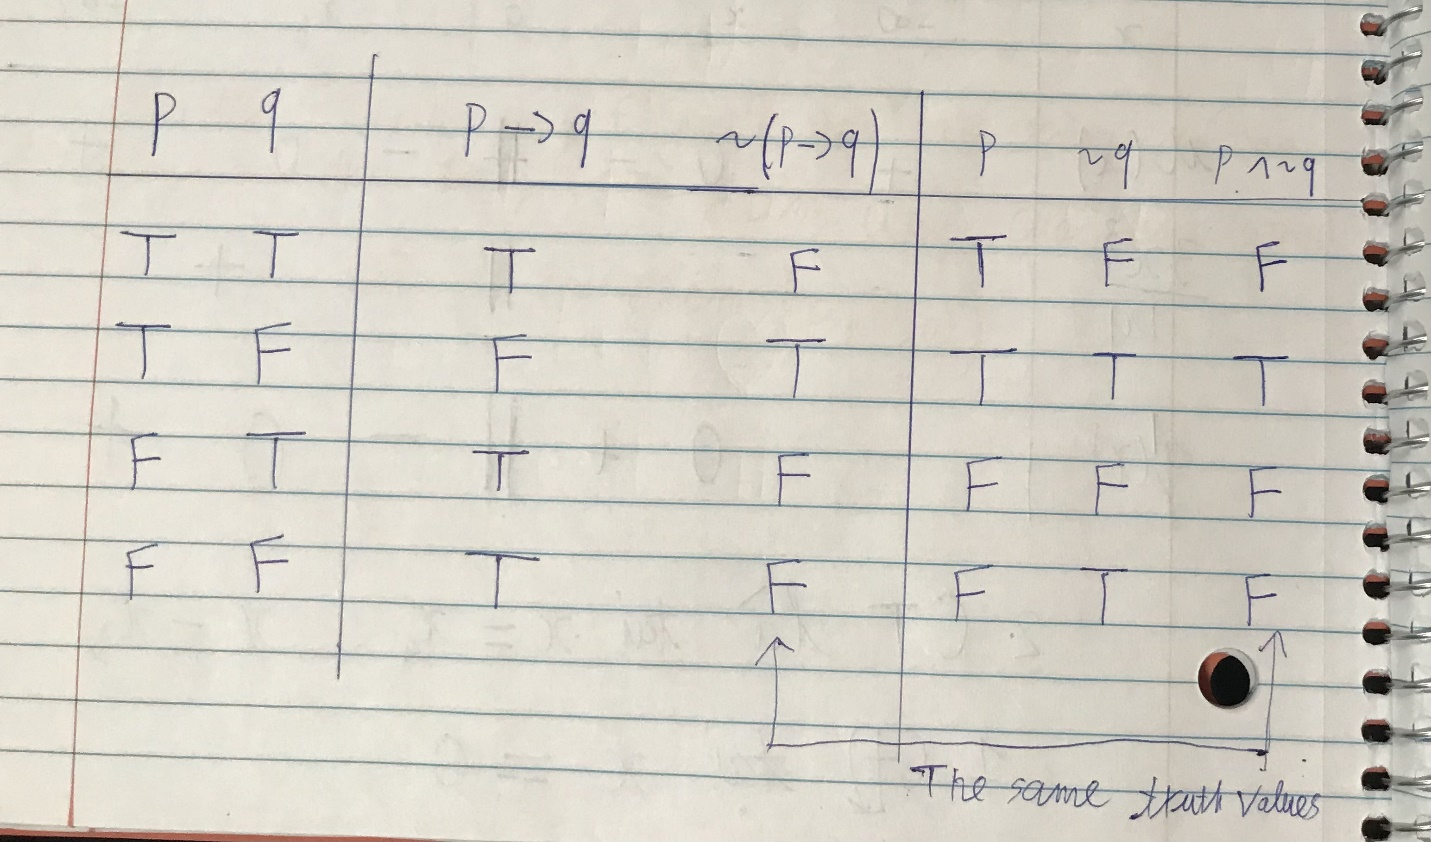 p q p → q ~(p→q) p ~q p ∧ ~q
T T T F T F F
T F F T T T T
F T T F F F F
F F T F F T F
The same truth values